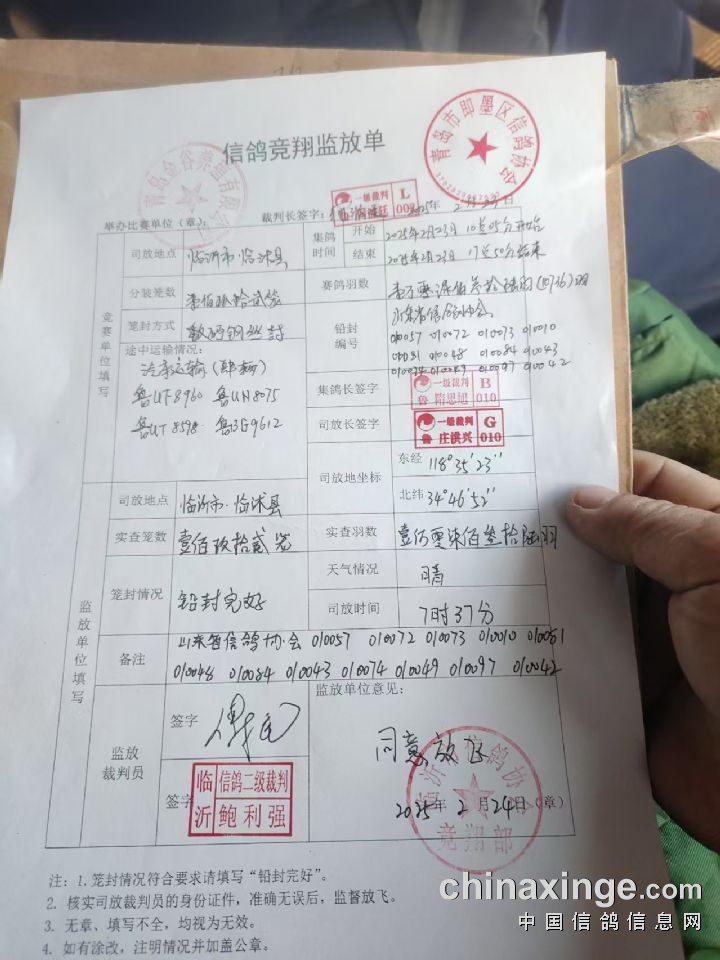 信鸽竞翔监放单
青岛市即墨区信鸽协会
举办比赛单位（章）： 裁判长签字： 一级裁判 L 2025年2月23日
竞赛单位填写
司放地点 临沂市临沭县
集鸽时间 开始 2025年2月23日10时05分开始
结束 2025年2月23日17时50分结束
分装笼数 壹佰玖拾贰笼
赛鸽羽数 壹万零柒佰叁拾陆羽(10736)羽
笼封方式 数码钢丝封
铅封编号 山东省信鸽协会
010057 010072 010073 010010
010048 010084 010043
010049 010097 010042
途中运输情况：
汽车运输
鲁UT8960 鲁UN8075
鲁UT8598 鲁3G9612
集鸽长签字 一级裁判 B 鲁 陪思旭 010
司放长签字 一级裁判 G 鲁 庄洪兴 010
司放地坐标 东经 118°35′23″
北纬 34°46′52″
监放单位填写
司放地点 临沂市·临沭县
实查笼数 壹佰玖拾贰笼
实查羽数 壹万零柒佰叁拾陆羽
笼封情况 铅封完好
天气情况 晴
司放时间 7时37分
备注 山东省信鸽协会 010057 010072 010073 010010 010081
010048 010084 010043 010074 010049 010097 010042
监放裁判员
签字
签字 临沂 信鸽二级裁判 鲍利强
监放单位意见：
同意放飞
2025年2月24日（章）
竞翔部
注：1. 笼封情况符合要求请填写“铅封完好”。
2. 核实司放裁判员的身份证件，准确无误后，监督放飞。
3. 无章、填写不全，均视为无效。
4. 如有涂改，注明情况并加盖公章。
chinaxinge.com
中国信鸽信息网